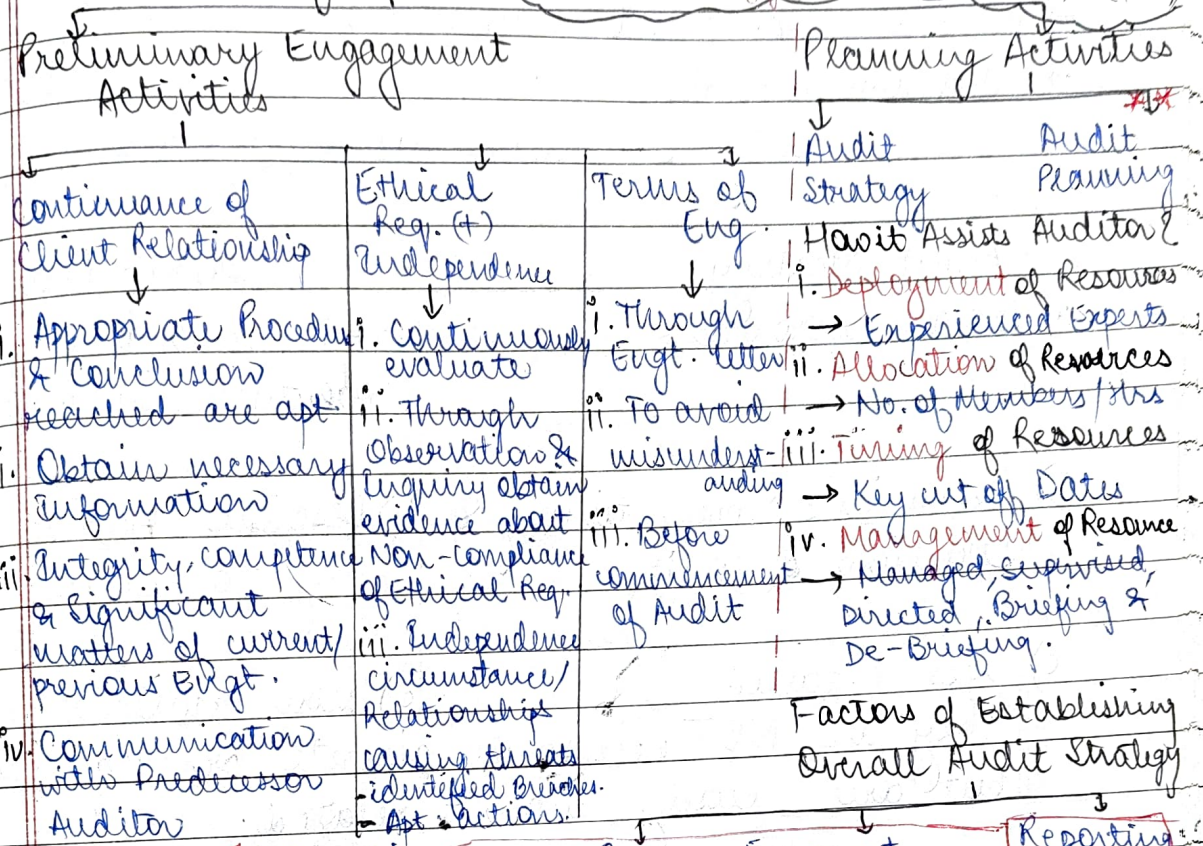 Preliminary Engagement
Activities
Continuance of
Client Relationship
i. Appropriate Procedures
& Conclusion
reached are apt.
ii. Obtain necessary
Information
iii. Integrity, competence
& Significant
matters of current/
previous Engt.
iv. Communication
with Predecessor
Auditor
Ethical
Req. (+)
Independence
i. Continuously
evaluate
ii. Through
Observation &
Inquiry obtain
evidence about
Non-Compliance
of Ethical Req.
iii. Independence
circumstance/
Relationships
causing threats
- identified Breaches.
- Apt. actions.
Terms of
Eng.
i. Through
Engt. letter
ii. To avoid
misunderst-
anding
iii. Before
commencement
of Audit
Planning Activities
Audit
Strategy
Audit
Planning
How it Assists Auditor?
i. Deployment of Resources
→ Experienced Experts
ii. Allocation of Resources
→ No. of Members/Hrs
iii. Timing of Resources
→ Key cut off Dates
iv. Management of Resource
→ Managed, Supervised,
Directed, Briefing &
De-Briefing.
Factors of Establishing
Overall Audit Strategy
Reporting